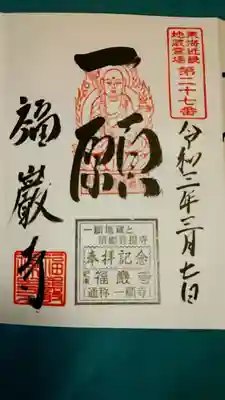 東海近畿
地蔵霊場
第二十七番
令和二年三月七日
一願
福巌寺
一願地蔵と
奉拝記念
福巌寺
(通称一願寺)